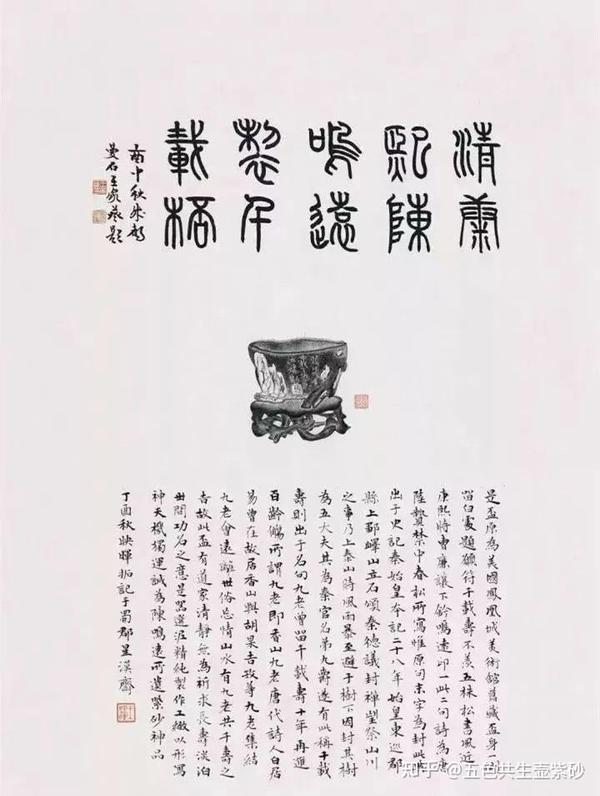 清康
熙陳
鳴遠
製千
載桮
酉中秋成都
曼石王家葵題
是盃原為美國鳳凰城美術館舊藏盃身一
留白處題願符千載壽不羨五株松書風近
康熙時曹廉讓下鈐鳴遠印一此二句詩為唐
陸贄禁中春松所寫惟原句末字為封此典
出于史記秦始皇本記二十八年始皇東巡郡
縣上鄒嶧山立石頌秦德議封禪望祭山川
之事乃上泰山時風雨暴至避于樹下因封其樹
為五大夫其為秦官名第九爵遂有此稱千載
壽則出于名句九老曾留千載壽十年再進
百齡觴所謂九老即香山九老唐代詩人白居
易曾在故居香山與胡杲吉玫等九老集結
九老會遠離世俗忘情山水有九老共千壽之
吉故此盃有道家清靜無為祈求長壽淡泊
世間功名之意是器選泥精純製作工緻以形寫
神天機獨運誠為陳鳴遠所遺紫砂神品
丁酉秋映暉拓記于蜀郡星漢齋
知乎 @五色共生壺紫砂